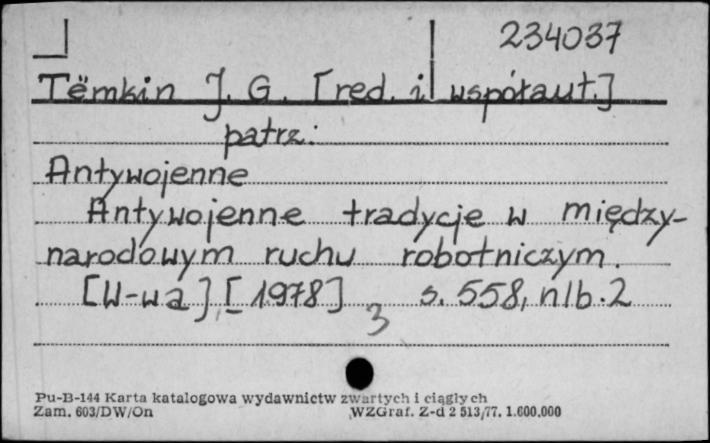 234037
Tëmkin J. G. [red. i współaut.]
patrz:
Antywojenne
Antywojenne tradycje w między-
narodowym ruchu robotniczym.
[W-wa], [1978] s. 558, nlb. 2
3
Pu-B-144 Karta katalogowa wydawnictw zwartych i ciągłych
Zam. 603/DW/On WZGraf. Z-d 2 513/77. 1.600.000